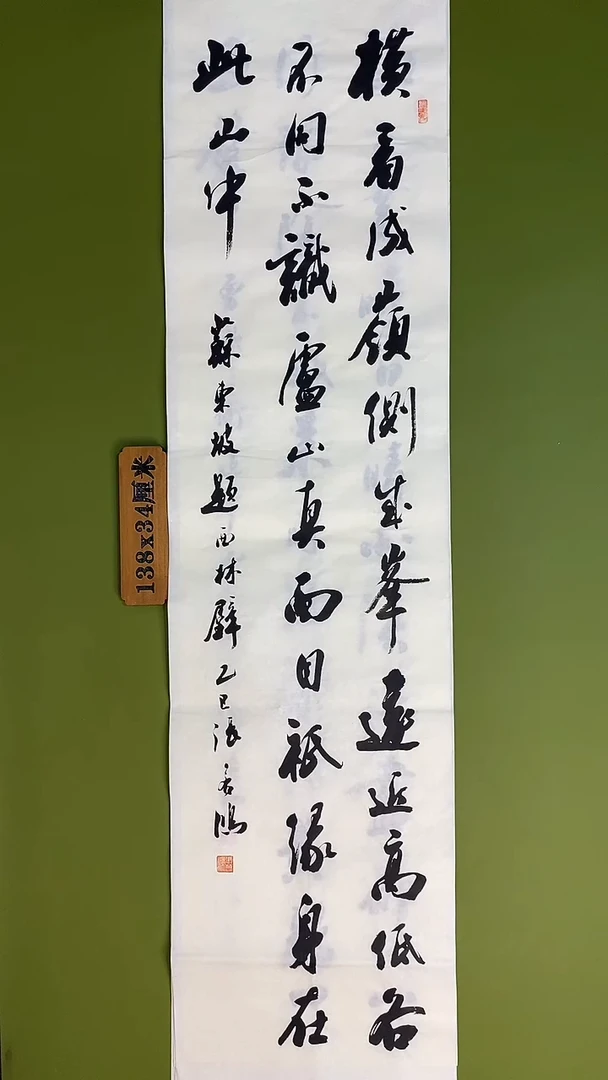 橫看成嶺側成峯遠近高低各
不同不識盧山真面目祗緣身在
此山中
蘇東坡題西林壁乙巳張鴻
138x34厘米